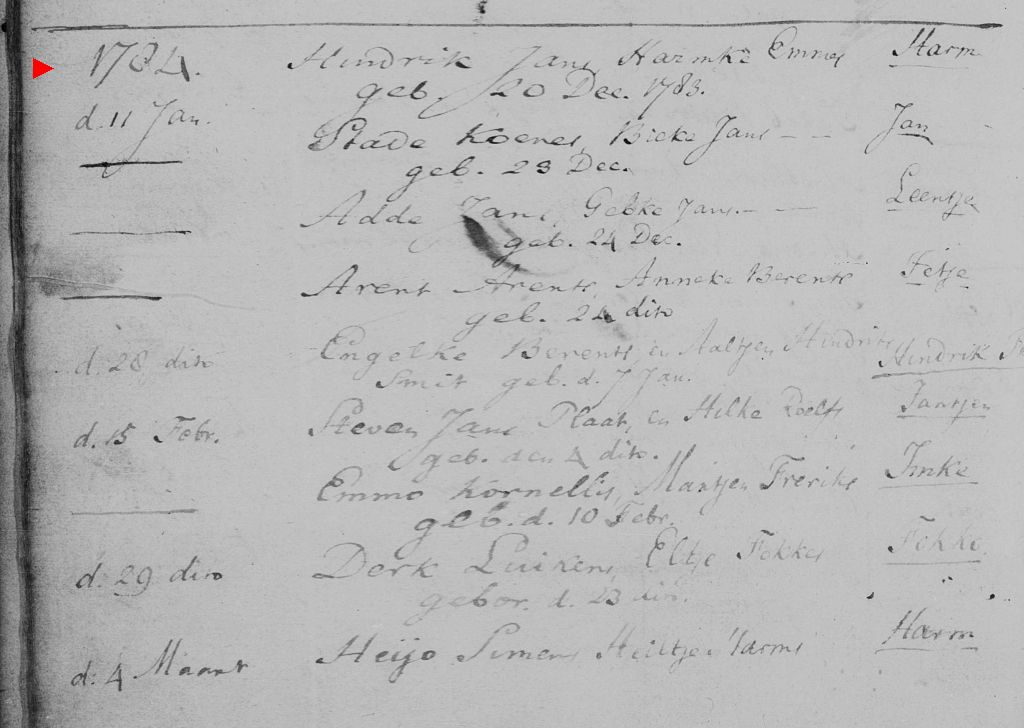 1784. Hindrik Jans Harmke Emmes Harm
geb. 20 Dec. 1783.
d. 11 Jan.
Stade Koenes, Bieke Jans - - Jan
geb. 23 Dec.
Adde Jans, Gebke Jans. - - Leentje
geb. 24 Dec.
Arent Arents, Anneke Berents Fetje
geb. 24 dito
d. 28 dito Engelke Berents, en Aaltjen Hindriks Hindrik
Smit geb. d. 7 Jan.
d. 15 Febr. Steven Jans Plaat, en Hilke Roelfs Jantjen
geb. den 4 dito.
Emmo Kornellis, Mantjen Freriks Imke
geb. d. 10 Febr.
d. 29 dito Derk Luikens, Eltje Fokkes Fokke
gebor. d. 23 dito.
d. 4 Maart Heijo Simens Hiltje Harms Harm